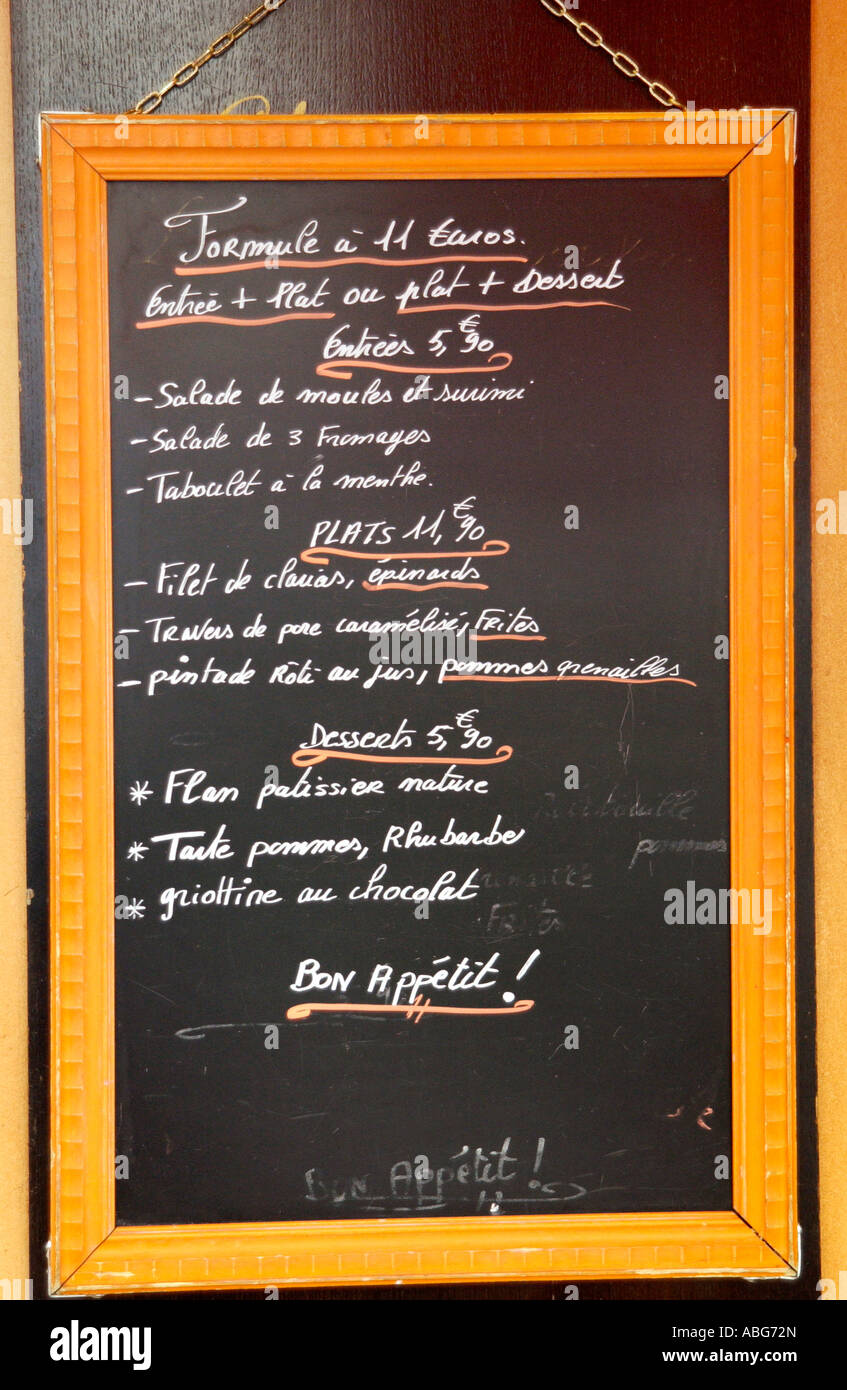 Formule à 11 Euros.
Entrée + Plat ou plat + Dessert
Entrées 5,€90
- Salade de moules et surimi
- Salade de 3 Fromages
- Taboulet à la menthe.
PLATS 11,€90
- Filet de clarias, épinards
- Travers de porc caramélisé, Frites
- pintade Rôti au jus, pommes grenailles
Desserts 5,€90
* Flan patissier nature
pommes
* Tarte pommes, Rhubarbe
* griottine au chocolat
Frites
Bon Appétit !
Bon Appétit !
alamy
Image ID: ABG72N
www.alamy.com